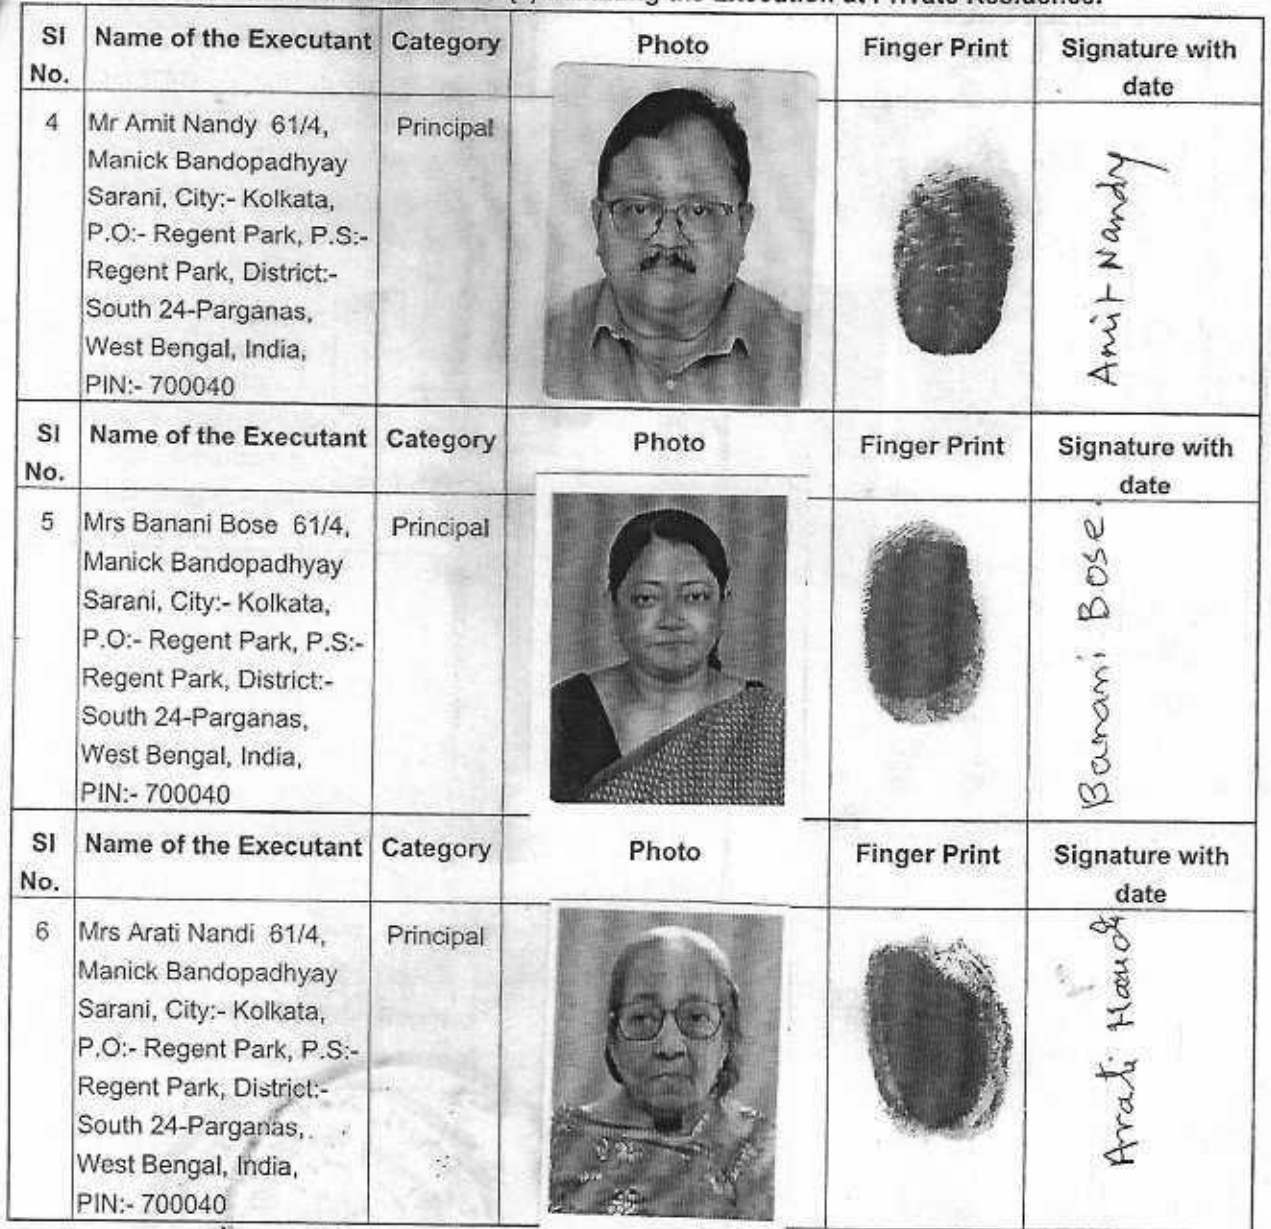 the Execution at Private Residence.
Sl No. Name of the Executant Category Photo Finger Print Signature with date
4 Mr Amit Nandy 61/4, Principal
Manick Bandopadhyay
Sarani, City:- Kolkata,
P.O:- Regent Park, P.S:-
Regent Park, District:-
South 24-Parganas,
West Bengal, India,
PIN:- 700040
Amit Nandy
Sl No. Name of the Executant Category Photo Finger Print Signature with date
5 Mrs Banani Bose 61/4, Principal
Manick Bandopadhyay
Sarani, City:- Kolkata,
P.O:- Regent Park, P.S:-
Regent Park, District:-
South 24-Parganas,
West Bengal, India,
PIN:- 700040
Banani Bose.
Sl No. Name of the Executant Category Photo Finger Print Signature with date
6 Mrs Arati Nandi 61/4, Principal
Manick Bandopadhyay
Sarani, City:- Kolkata,
P.O:- Regent Park, P.S:-
Regent Park, District:-
South 24-Parganas,
West Bengal, India,
PIN:- 700040
Arati Nandi